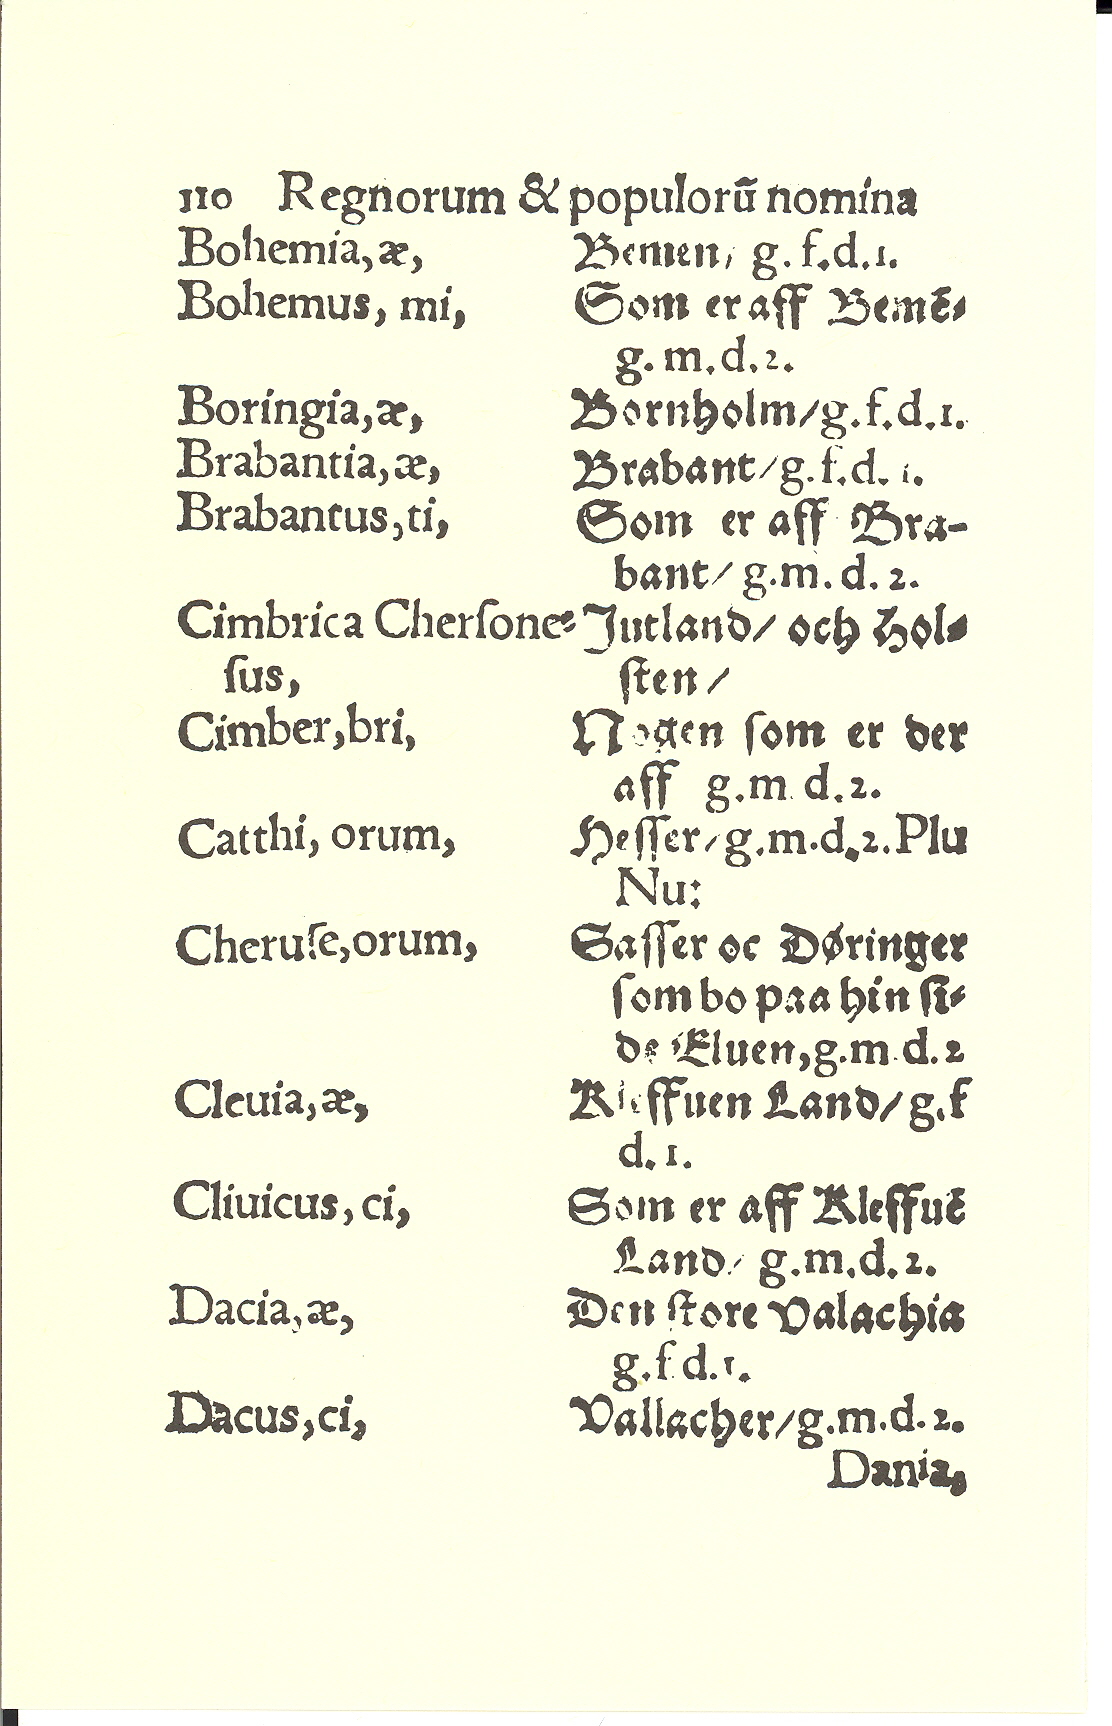 110 Regnorum & populorũ nomina
Bohemia,æ, Bemen, g. f.d.1.
Bohemus, mi, Som er aff Bemẽ⸗
g. m.d.2.
Boringia,æ, Bornholm/g.f.d.1.
Brabantia,æ, Brabant/g.f.d. 1.
Brabantus,ti, Som er aff Bra-
bant/ g.m.d.2.
Cimbrica Cherſone⸗ Jutland/ och Hol⸗
ſus, ſten/
Cimber,bri, Nogen ſom er der
aff g.m d.2.
Catthi, orum, Heſſer/g.m.d.2.Plu
Nu:
Cheruſe,orum, Saſſer oc Døringer
ſom bo paa hin ſi⸗
de Eluen,g.m.d.2
Cleuia,æ, Kleffuen Land/g.f
d.1.
Cliuicus,ci, Som er aff Kleffuẽ
Land/ g.m.d.2.
Dacia,æ, Den ſtore Valachia
g.f d.1.
Dacus,ci, Vallacher/g.m.d.2.
Dania,